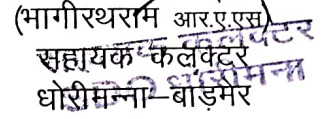 (भागीरथराम आर.ए.एस)
सहायक कलेक्टर
धोरीमन्ना–बाड़मेर